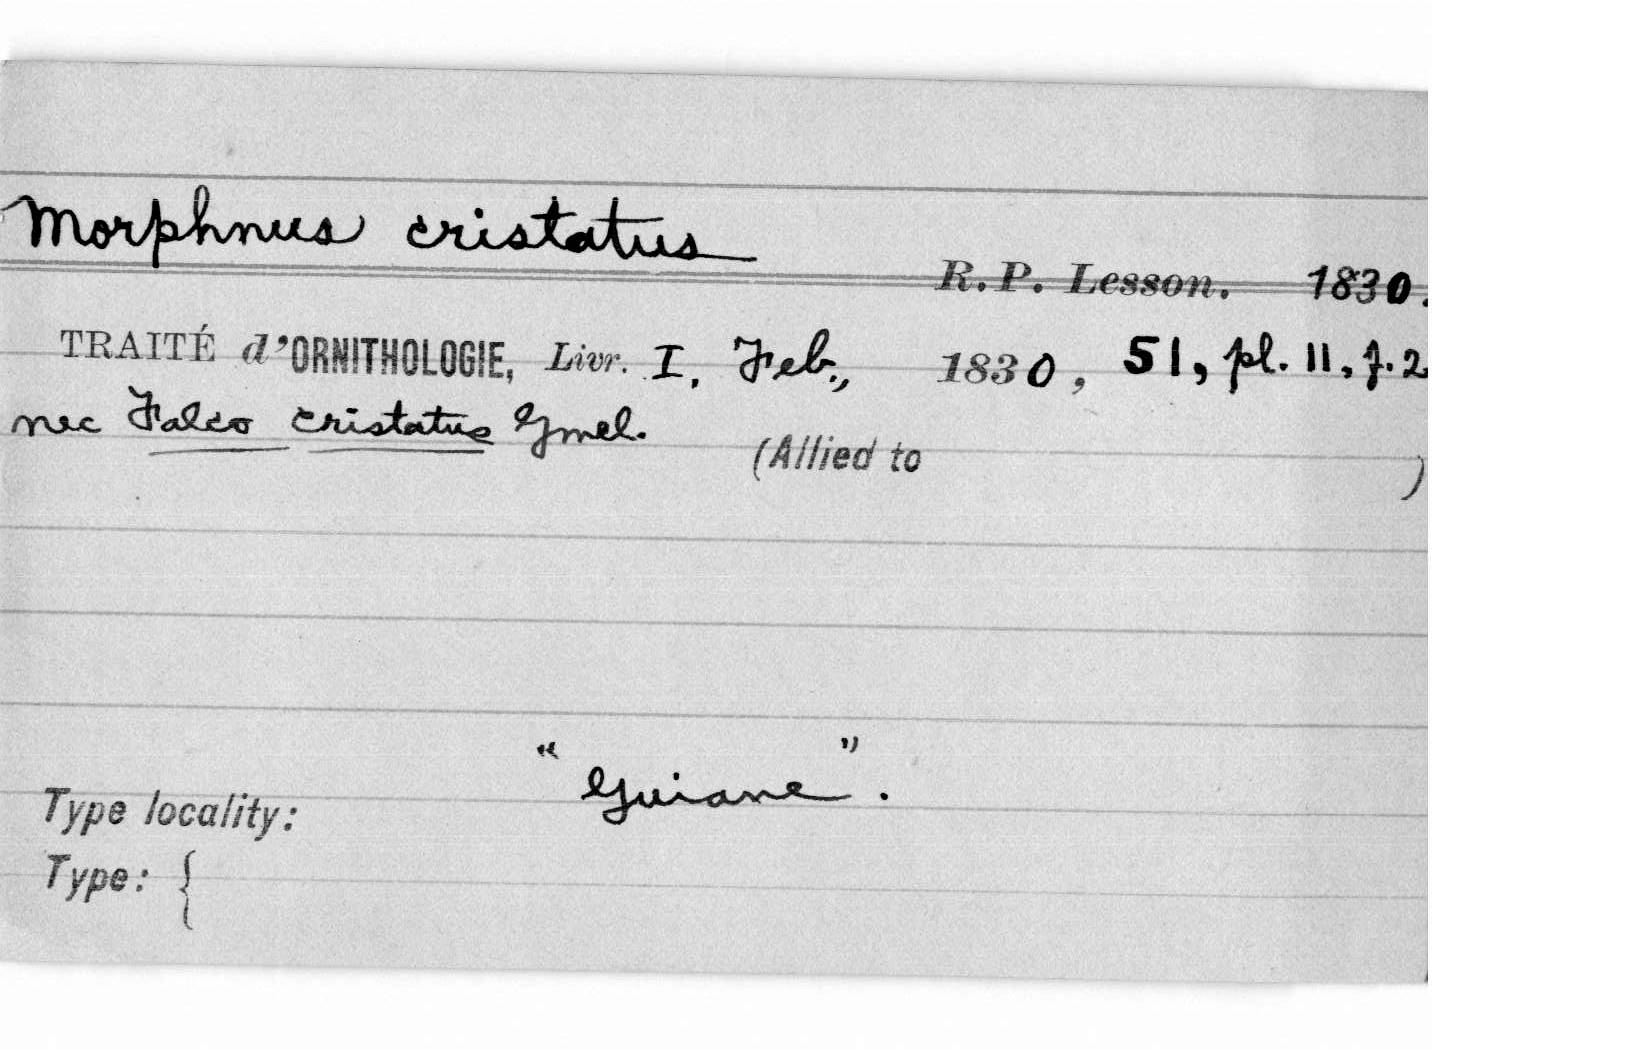 Morphnus cristatus
R. P. Lesson. 1830.
TRAITÉ d'ORNITHOLOGIE, Livr. I, Feb., 1830, 51, pl. 11, f. 2
nec Falco cristatus Gmel.
(Allied to )
Type locality: "Guiane".
Type: {